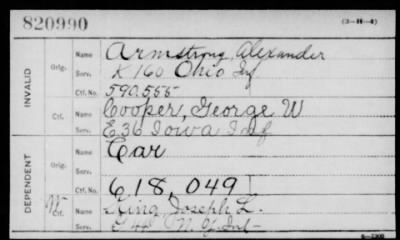 820990
(3-H-4)
INVALID
Orig.
Name Armstrong, Alexander
Serv. K 160 Ohio Inf
Ctf. No. 590.555
Ctf.
Name Cooper, George W
Serv. E 36 Iowa Inf
DEPENDENT
Orig.
Name Car
Serv.
Ctf. No. 618,049
W Ctf.
Name King Joseph L.
Serv. N.Y. Inf